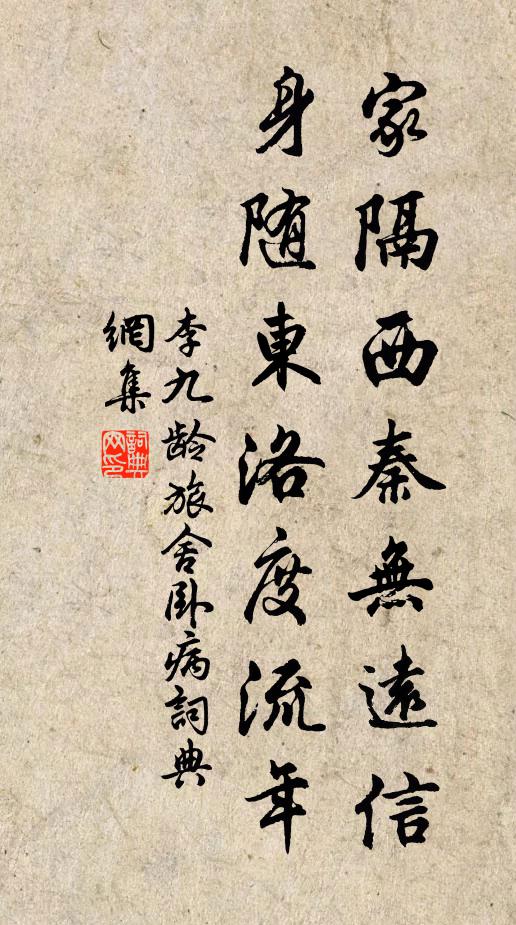 家隔西秦無遠信
身随東洛度流年
李九齡旅舍卧病詞典
網集
詞典
网印